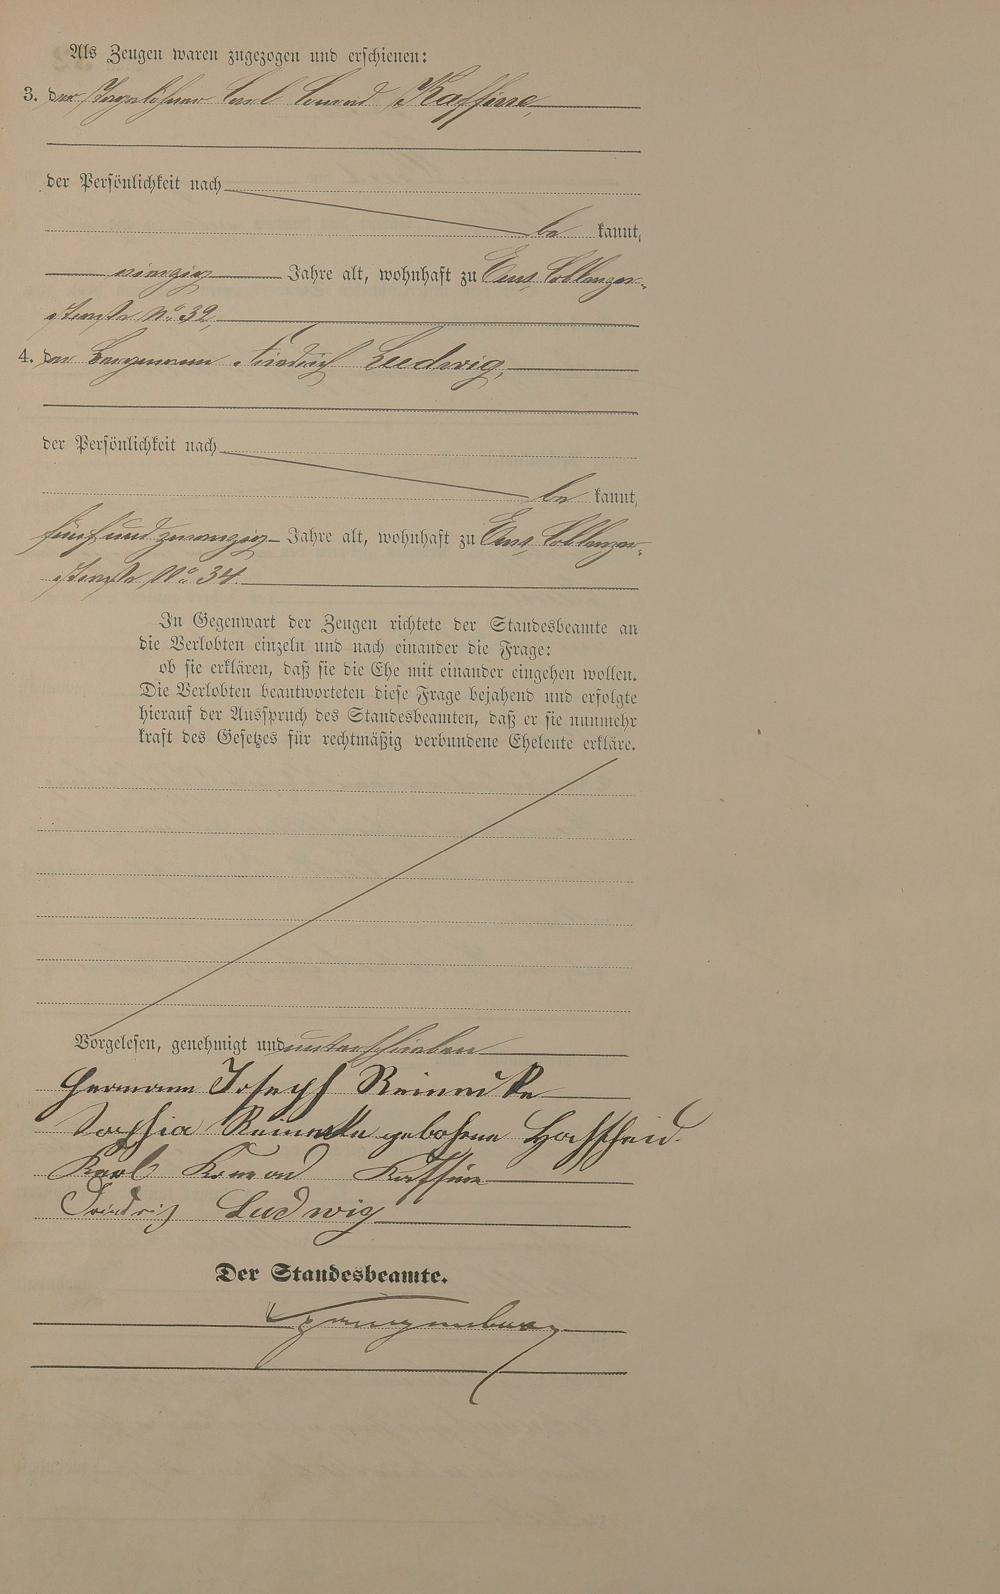 Als Zeugen waren zugezogen und erschienen:
3. der Tagelöhner Carl Conrad Kaffine,
der Persönlichkeit nach
be kannt,
vierzig Jahre alt, wohnhaft zu Ems, Coblenzer-
straße No 39,
4. der Bergmann Friedrich Ludwig,
der Persönlichkeit nach
be kannt,
fünf und zwanzig Jahre alt, wohnhaft zu Ems, Coblenzer-
straße No 34
In Gegenwart der Zeugen richtete der Standesbeamte an
die Verlobten einzeln und nach einander die Frage:
ob sie erklären, daß sie die Ehe mit einander eingehen wollen.
Die Verlobten beantworteten diese Frage bejahend und erfolgte
hierauf der Ausspruch des Standesbeamten, daß er sie nunmehr
kraft des Gesetzes für rechtmäßig verbundene Eheleute erkläre.
Vorgelesen, genehmigt und unterschrieben
Hermann Joseph Reinecke
Sophia Reinecke geborene Hochscheid.
Karl Konrad Kaffine
Friedrich Ludwig
Der Standesbeamte.